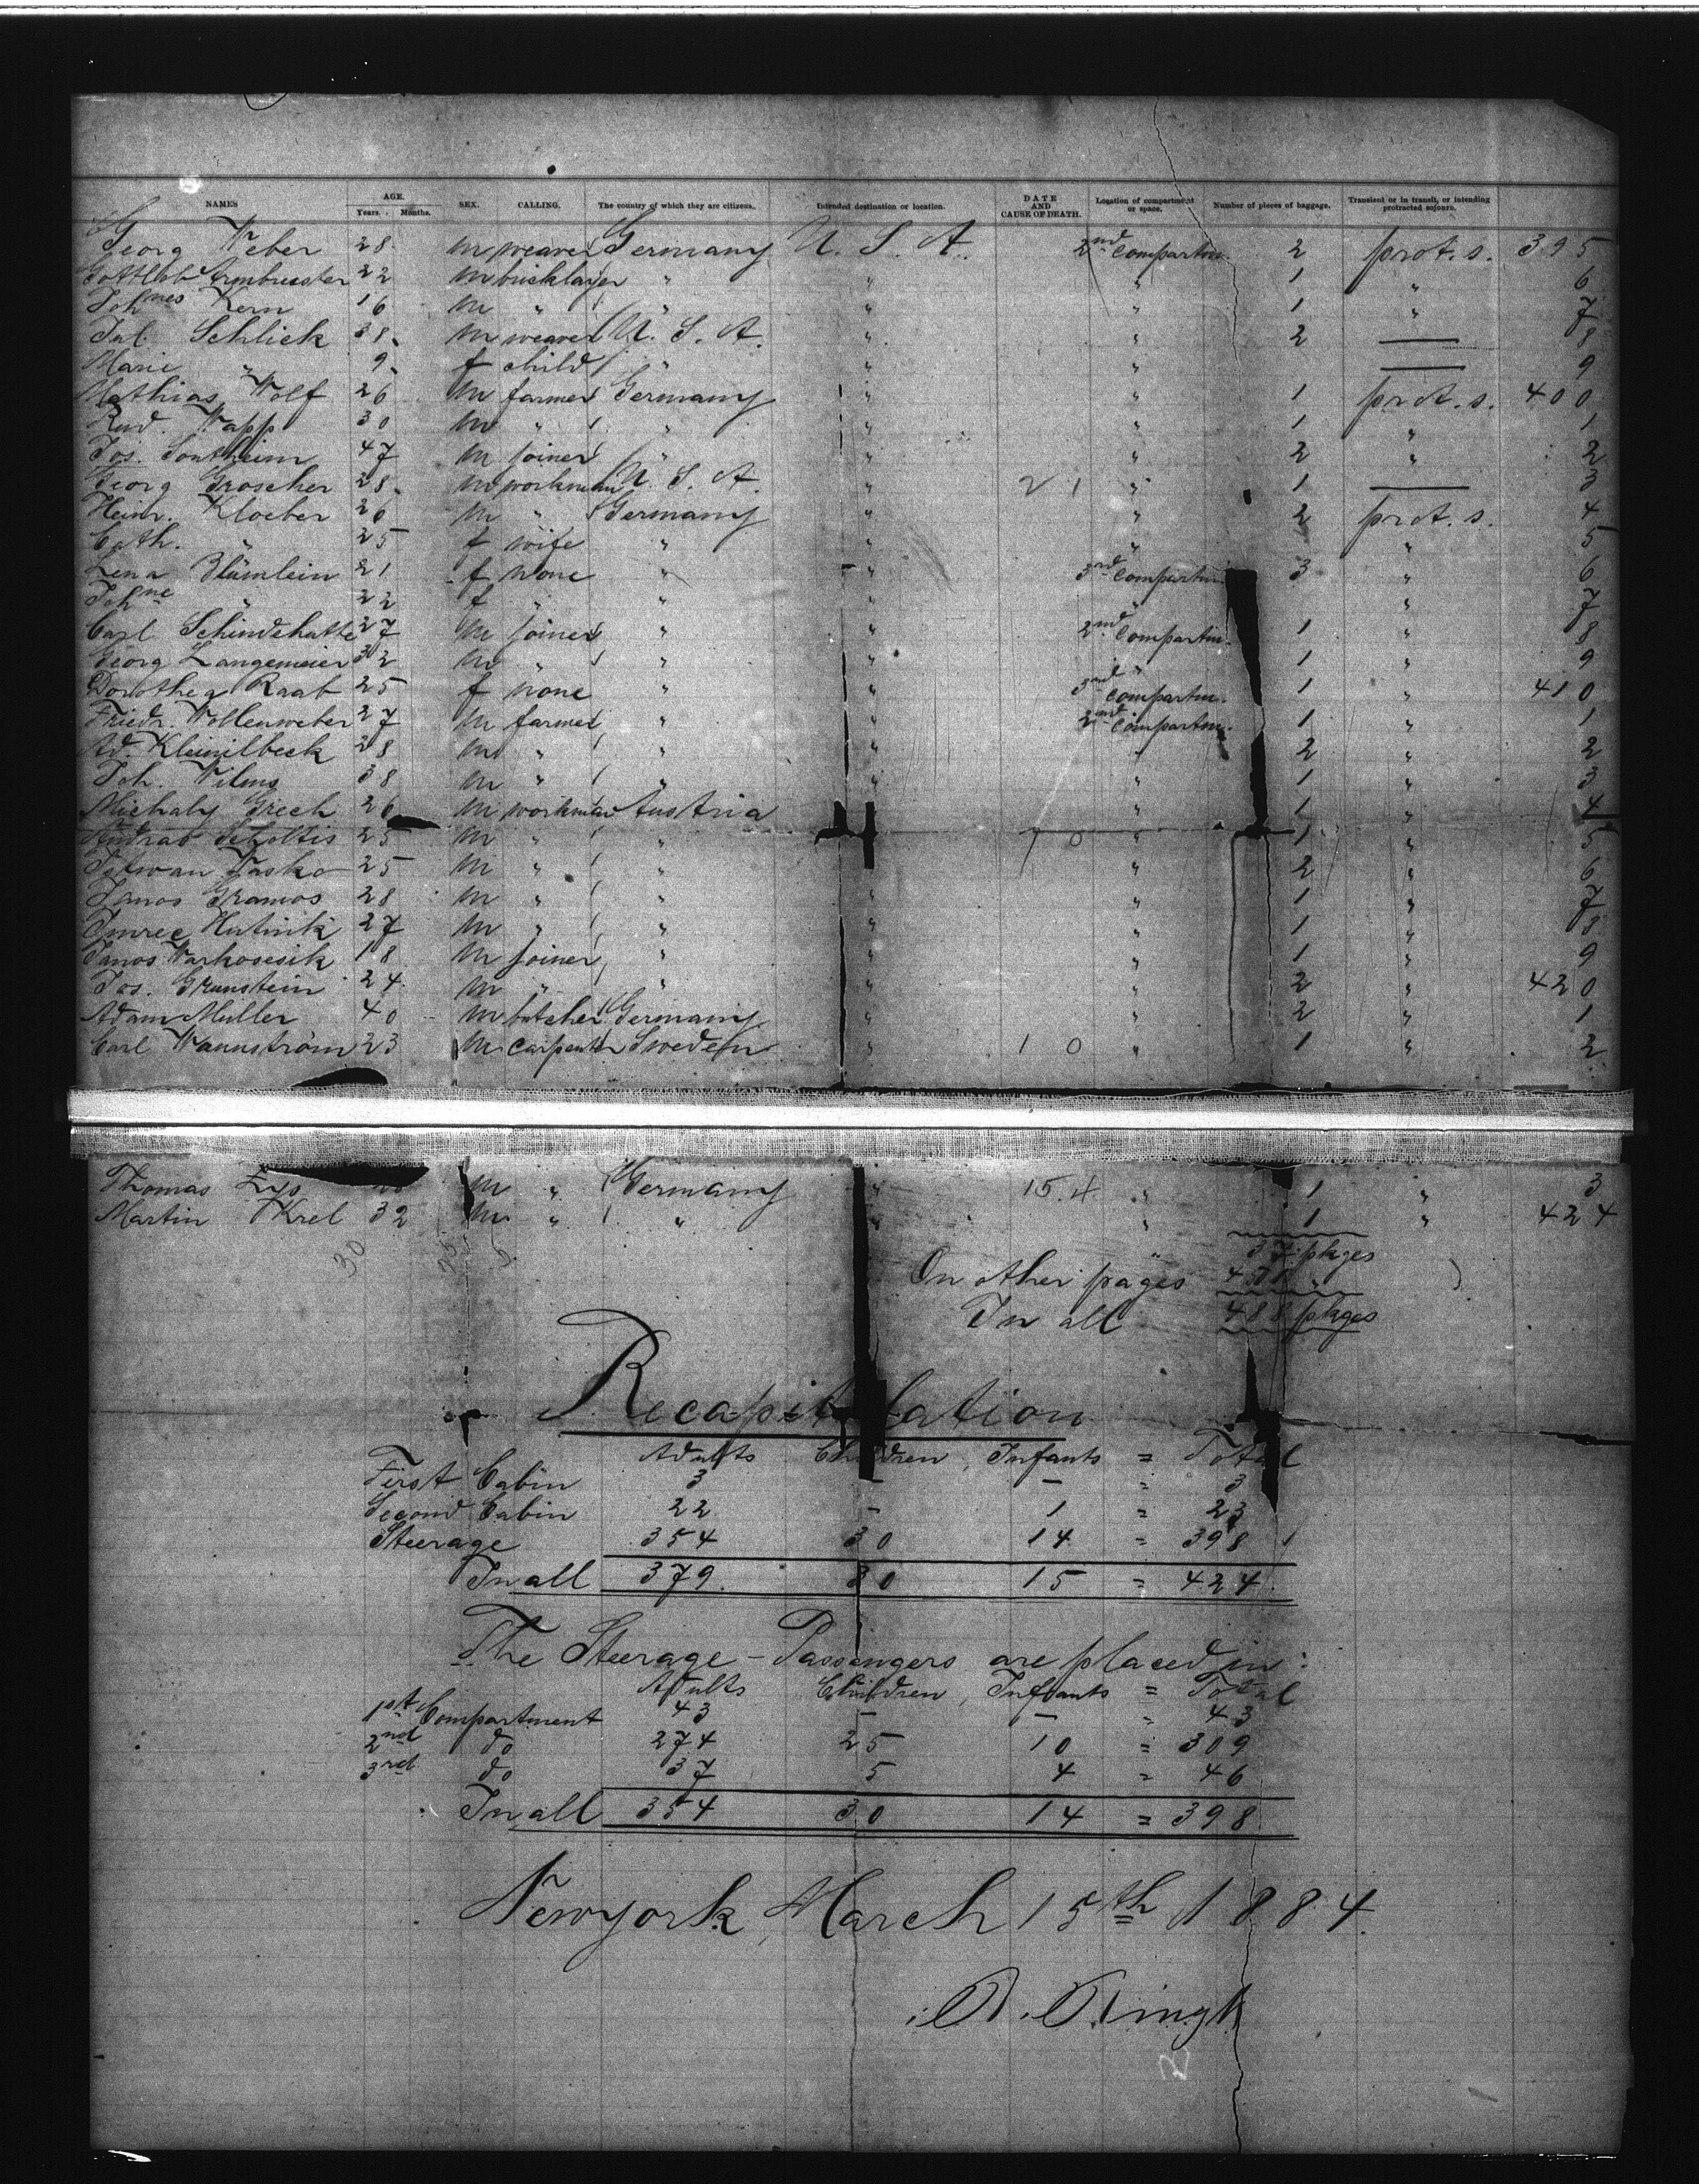 NAMES AGE. Years. Months. SEX. CALLING. The country of which they are citizens. Intended destination or location. DATE AND CAUSE OF DEATH. Location of compartment or space. Number of pieces of baggage. Transient or in transit, or intending protracted sojourn.
Georg Weber 28 m weaver Germany U. S. A. 2nd Compartm. 2 prot. s. 395
Gottlob Armbruster 22 m bricklayer " " " 1 " 6
Joh nes Kern 16 m " " " " 1 " 7
Jul. Schlick 38 m weaver U. S. A. " " 2 — 8
Marie " 9 f child " " " — 9
Mathias Wolf 26 m farmer Germany " " 1 prot. s. 400
Rud. Wapp 30 m " " " " 1 " 1
Jos. Sontheim 47 m joiner " " " 2 " 2
Georg Groscher 28 m workman U. S. A. " 21 " 1 — 3
Heinr. Kloeber 20 m " Germany " " 2 prot. s. 4
Cath. " 25 f wife " " " " 5
Lena Blümlein 21 f none " " 3rd Compartm. 3 " 6
Joh ne " 22 f " " " " " 7
Carl Schindehutte 27 m joiner " " 2nd Compartm. 1 " 8
Georg Langemeier 32 m " " " " 1 " 9
Dorothea Raab 25 f none " " 3rd compartm. 1 " 410
Friedr. Wollenweber 27 m farmer " " 2nd Compartm. 1 " 1
Ad. 28 m " " " " 2 " 2
Joh. Wilms 38 m " " " " 1 " 3
Michaly Grech 26 m workman Austria " " 1 " 4
Andras Scholtis 25 m " " " 10 " 1 " 5
Vasko 25 m " " " " 2 " 6
Janos Gramos 28 m " " " " 1 " 7
Imree Hutnik 27 m " " " " 1 " 8
Janos Warkosesik 18 m joiner " " " 1 " 9
Jos. Grunstein 24 m " " " " 2 " 420
Adam Muller 40 m butcher Germany " " 2 " 1
Carl Wannström 23 m carpenter Sweden " 10 " 1 " 2
Thomas m " Germany " 15.4 " 1 " 3
Martin Krel 32 m " " " " 1 " 424
30
37 pkges
On other pages 451 "
In all 488 pkges
Recapitulation
Adults Children, Infants = Total
First Cabin 3 — = 3
Second Cabin 22 - 1 = 23
Steerage 354 30 14 = 398
In all 379 30 15 = 424
The Steerage - Passengers are placed in:
Adults Children, Infants = Total
1st Compartment 43 - - = 43
2nd do 274 25 10 = 309
3rd do 37 5 4 = 46
In all 354 30 14 = 398
Newyork, March 15th 1884.
R. Ringk